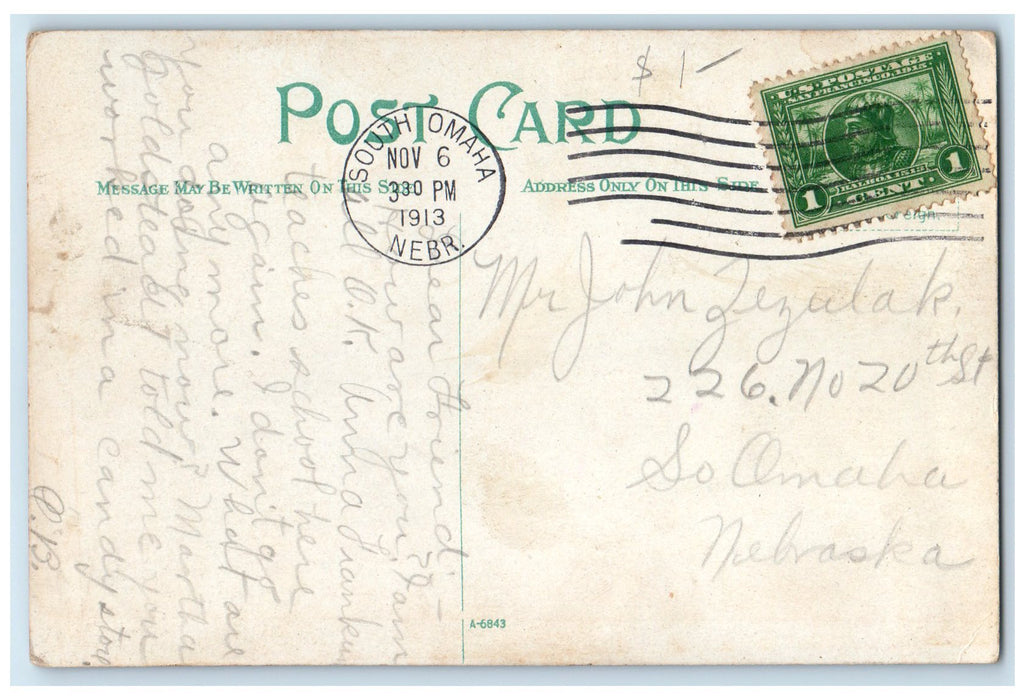 $1-
POST CARD
SOUTH OMAHA
NOV 6
330 PM
1913
NEBR.
U.S. POSTAGE
SAN FRANCISCO 1915
BALBOA 1513
1 CENT. 1
MESSAGE MAY BE WRITTEN ON THIS SIDE
ADDRESS ONLY ON THIS SIDE
Dear Friend:-
How are you? I am
all O.K. Anna
teaches school here
again. I don't go
any more. What are
you doing now? Martha
Goldstead told me you
worked in a candy store
C.B.
Mr John Zezulak.
226. No 20th St
So Omaha
Nebraska
A-6843